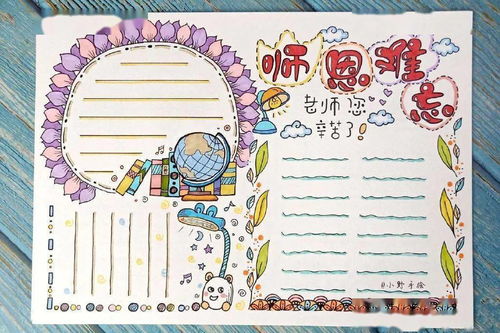 师恩难忘
老师您
辛苦了!
@小野手绘